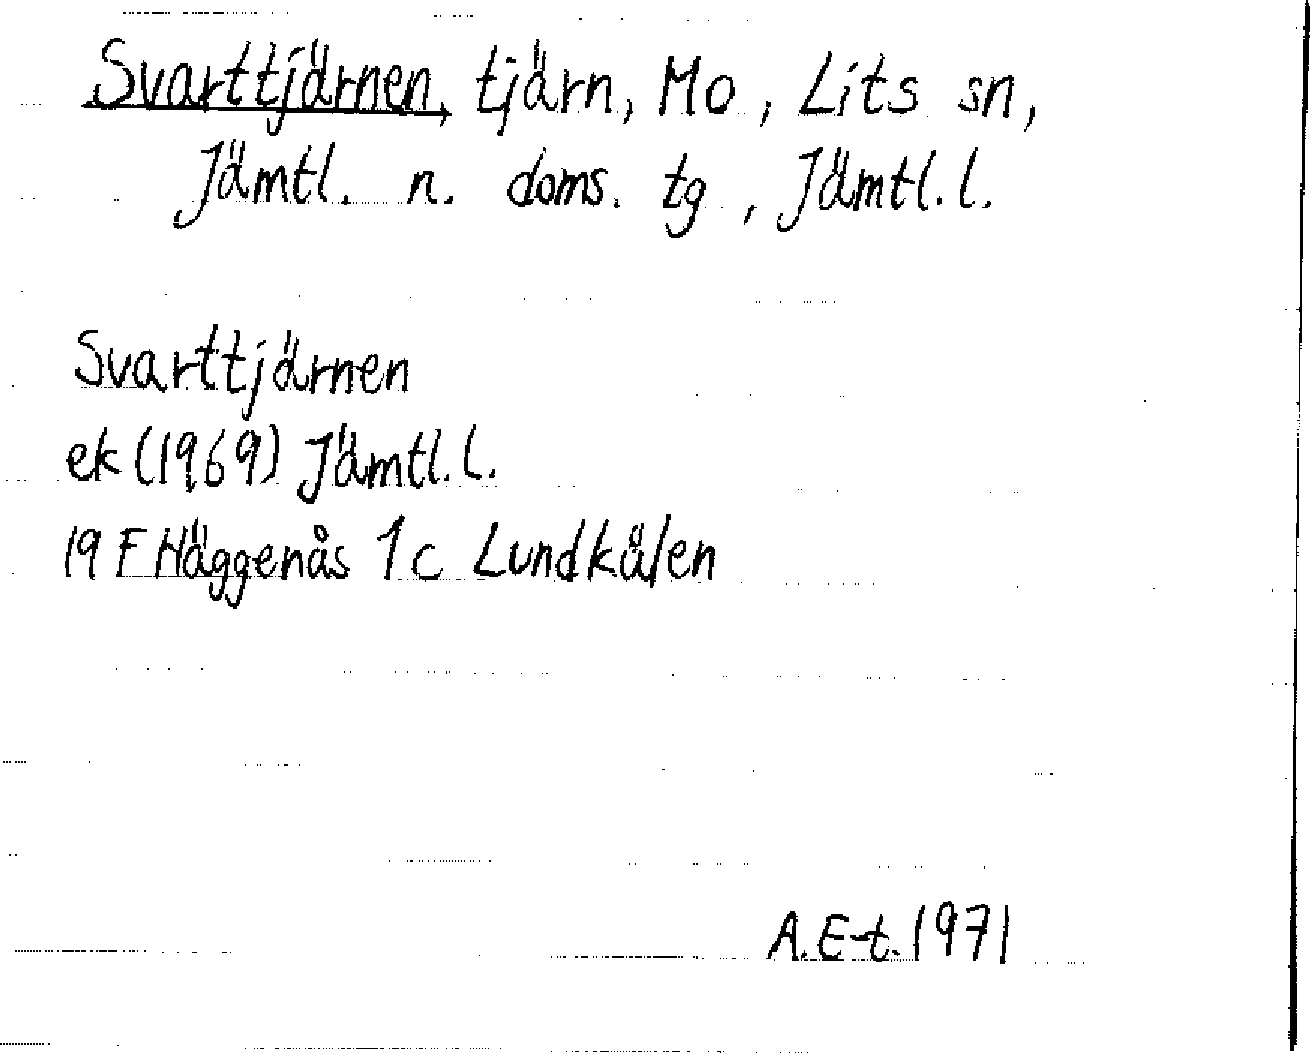 Svarttjärnen, tjärn, Mo, Lits sn,
Jämtl. n. doms. tg, Jämtl. l.
Svarttjärnen
ek (1969) Jämtl. l.
19 F Häggenås 1 c Lundkälen
A.E-t. 1971